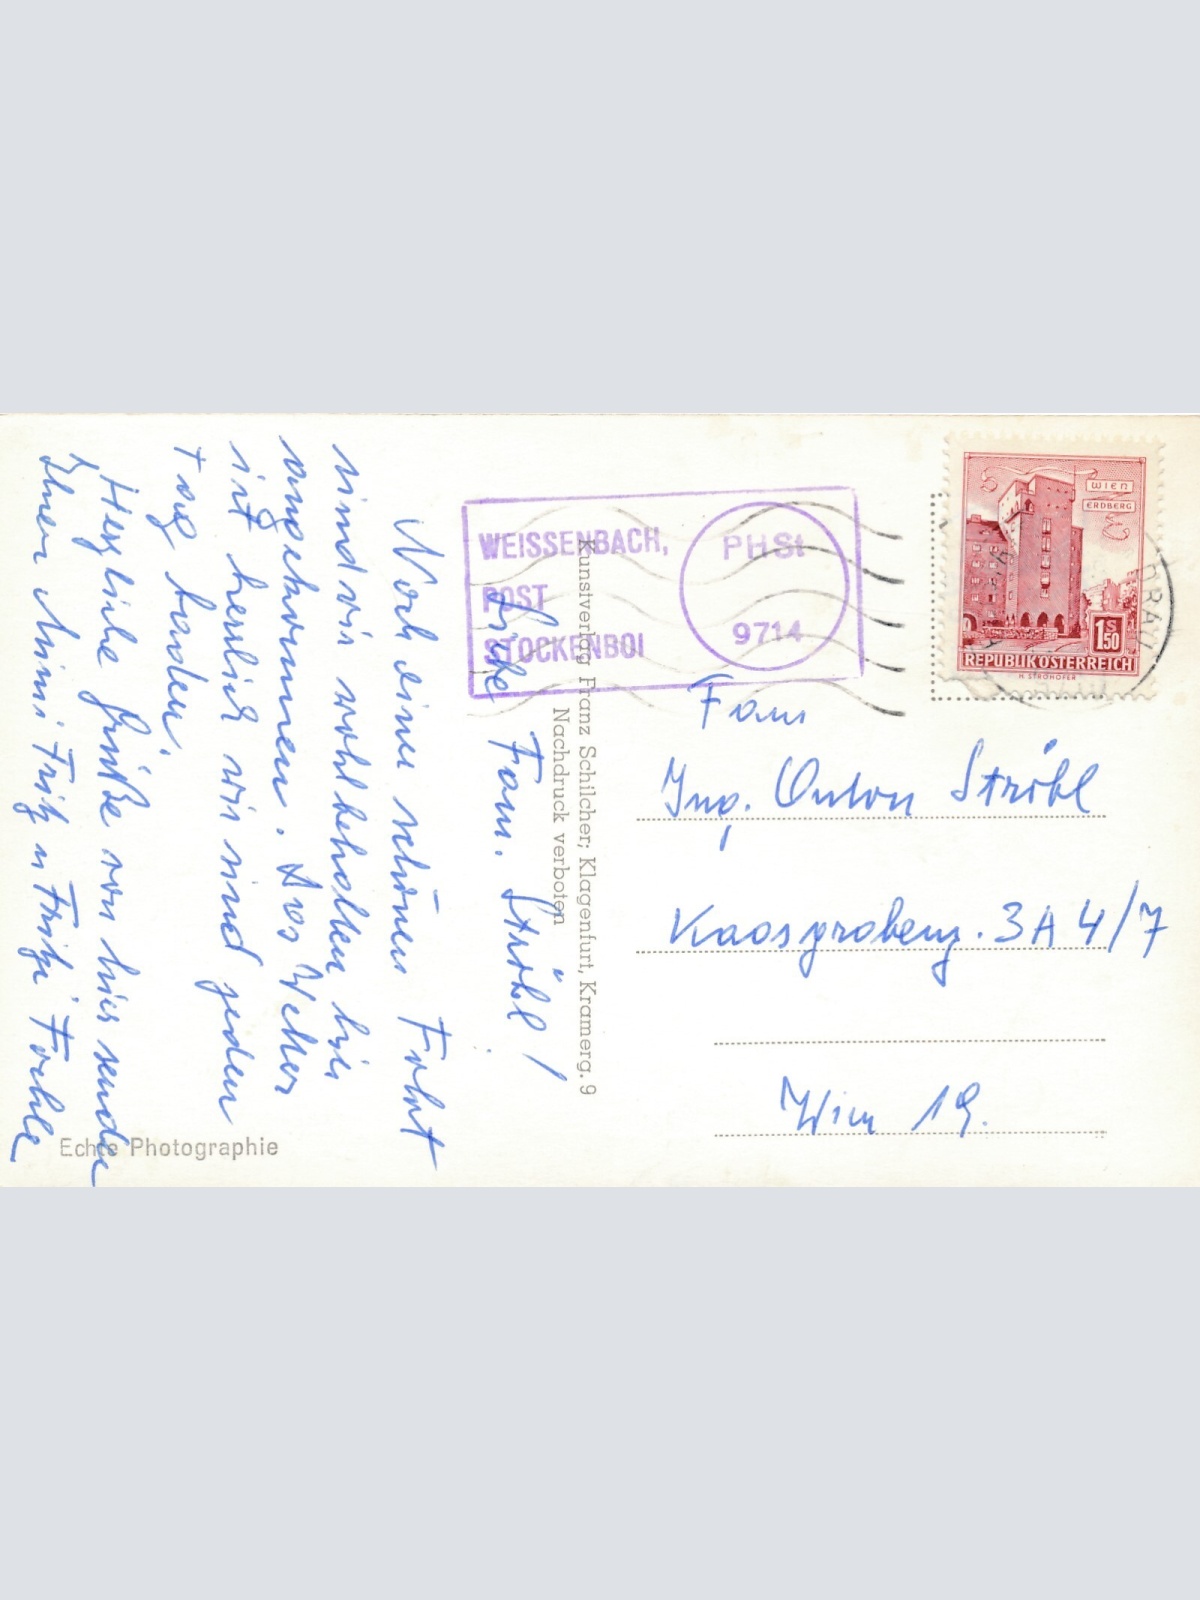 Liebe Fam. Ströbl!
Nach einer schönen Fahrt
sind wir wohlbehalten hier
angekommen. Das Wetter
ist herrlich wir sind jeden
Tag baden.
Herzliche Grüße von hier sendet
Ihnen Mimi Fritz u Fritzi
Echte Photographie
Kunstverlag Franz Schilcher, Klagenfurt, Kramerg. 9
Nachdruck verboten
WEISSENBACH,
POST
STOCKENBOI
PHSt
9714
WIEN
ERDBERG
1.50 S
REPUBLIK ÖSTERREICH
H. STROHOFER
DRAU
Fam
Ing. Anton Ströbl
Kaasgrabeng. 3A 4/7
Wien 19.